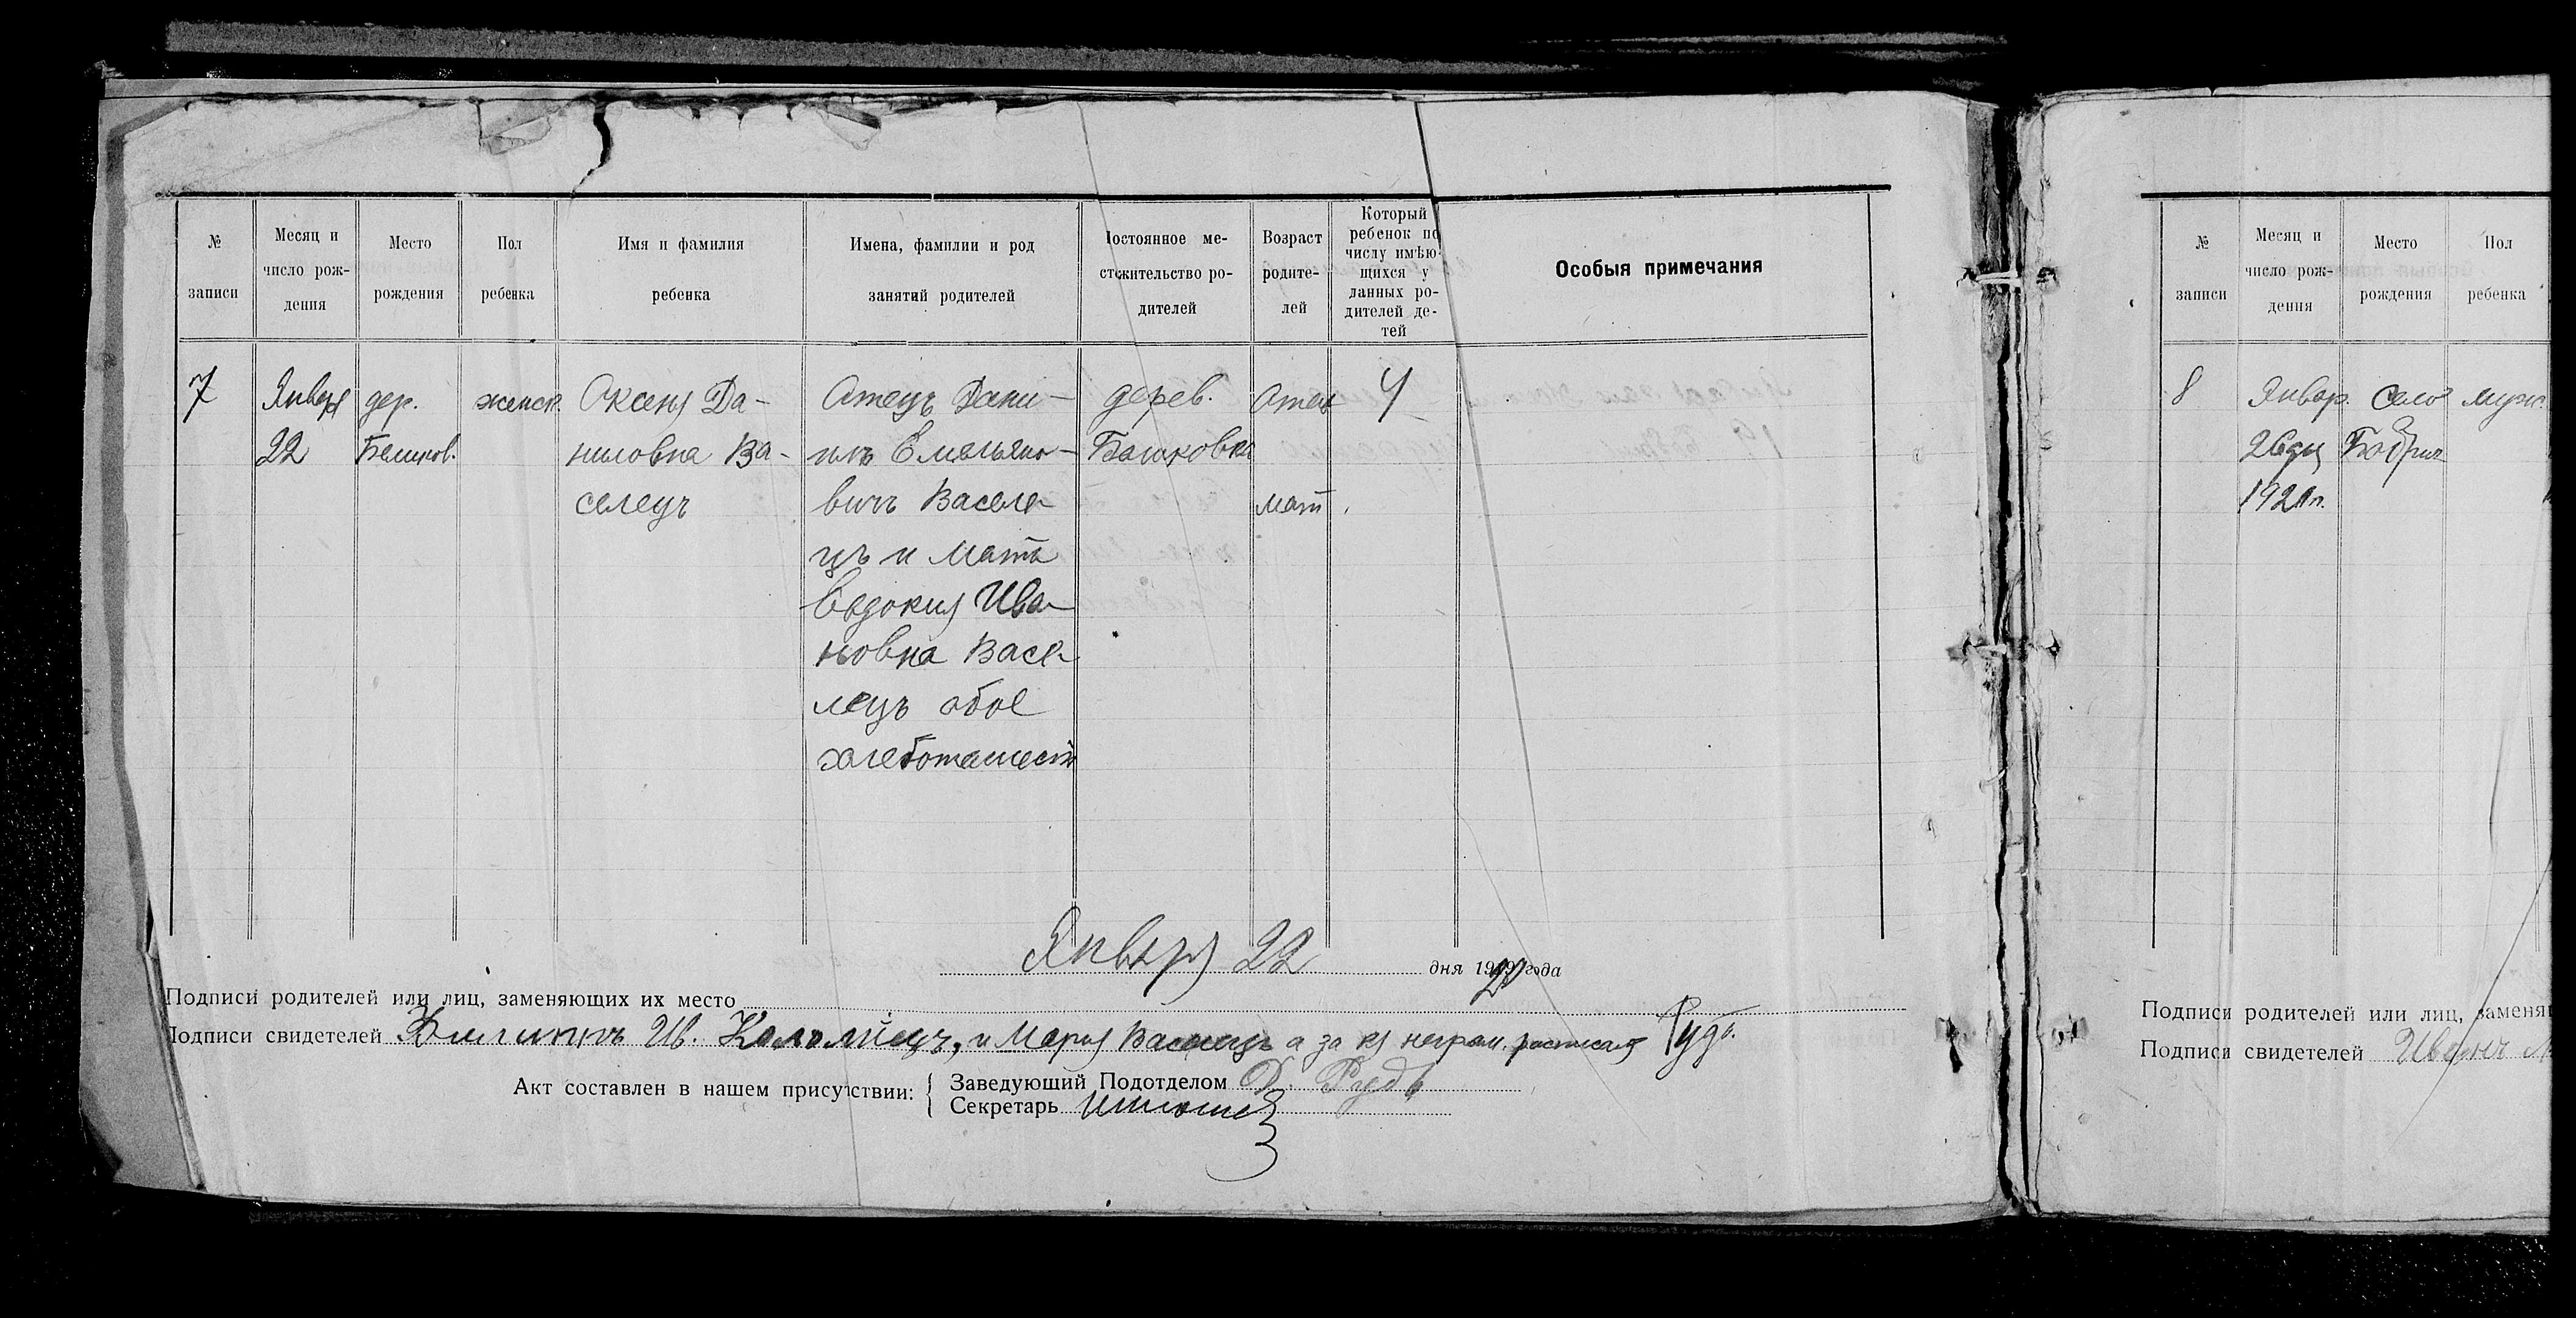 № записи
Месяц и число рождения
Место рождения
Пол ребенка
Имя и фамилия ребенка
Имена, фамилии и род занятий родителей
Постоянное местожительство родителей
Возраст родителей
Который ребенок по числу имѣющихся у данных родителей детей
Особыя примечания
7
Января
22
дер.
женск.
Оксенія Да-
ниловна Ва-
селецъ
Отецъ Дани-
илъ Емельяно-
вичъ Василе-
цъ и мать
Евдокия Ива-
новна Васе-
лецъ обое
дерев.
Отец
мать
4
Января 22 дня 1920 года
Подписи родителей или лиц, заменяющих их место
Подписи свидетелей Ив. Коломіецъ, и Мария Василецъ а за ея неграм. расписался Рудь.
Акт составлен в нашем присутствии:
Заведующий Подотделом Рудь
Секретарь
№ записи
Месяц и число рождения
Место рождения
Пол ребенка
8
Январ.
26дня
Село
муж.
Подписи родителей или лиц, заменя
Подписи свидетелей Иванъ